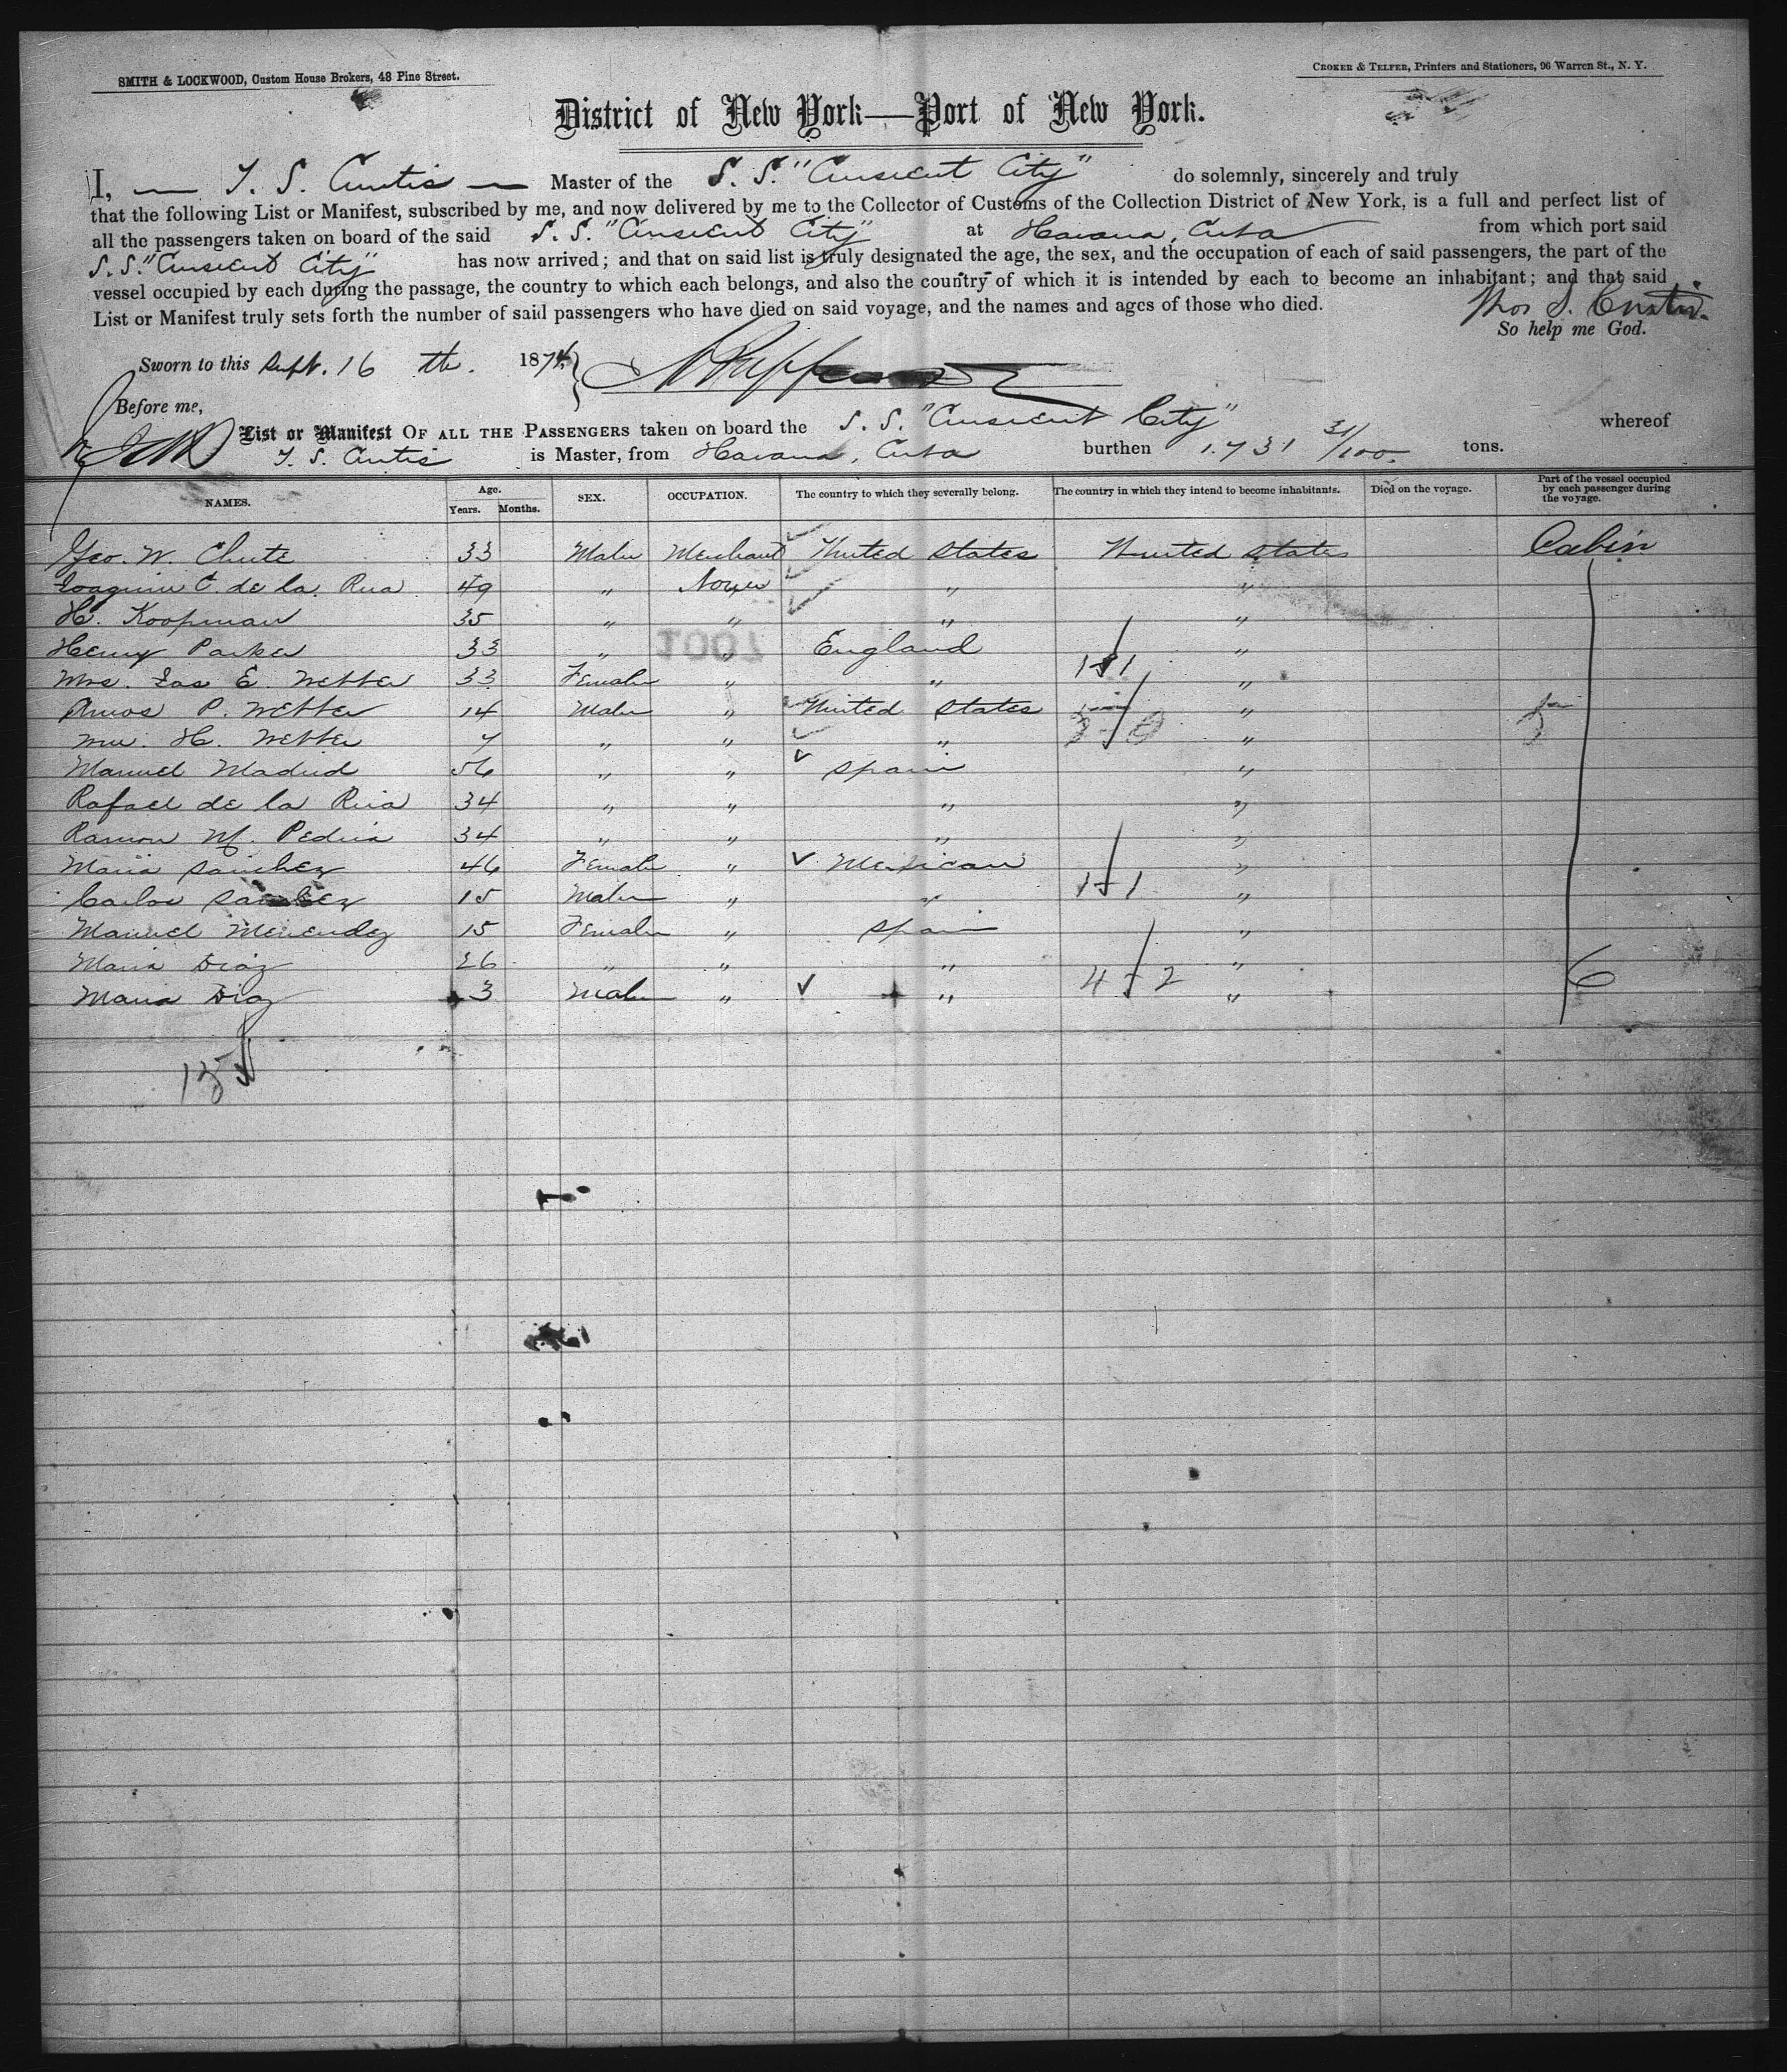 SMITH & LOCKWOOD, Custom House Brokers, 48 Pine Street.
CROKER & TELFER, Printers and Stationers, 96 Warren St., N. Y.
District of New York—Port of New York.
I, — T. S. Curtis — Master of the S. S. "Crescent City" do solemnly, sincerely and truly
that the following List or Manifest, subscribed by me, and now delivered by me to the Collector of Customs of the Collection District of New York, is a full and perfect list of
all the passengers taken on board of the said S. S. "Crescent City" at Havana, Cuba from which port said
S. S. "Crescent City" has now arrived; and that on said list is truly designated the age, the sex, and the occupation of each of said passengers, the part of the
vessel occupied by each during the passage, the country to which each belongs, and also the country of which it is intended by each to become an inhabitant; and that said
List or Manifest truly sets forth the number of said passengers who have died on said voyage, and the names and ages of those who died. Thos S. Curtis.
So help me God.
Sworn to this Sept. 16 th. 1874
Before me,
List or Manifest OF ALL THE PASSENGERS taken on board the S. S. "Crescent City" whereof
T. S. Curtis is Master, from Havana, Cuba burthen 1.731 31/100 tons.
NAMES. Age. Years. Months. SEX. OCCUPATION. The country to which they severally belong. The country in which they intend to become inhabitants. Died on the voyage. Part of the vessel occupied by each passenger during the voyage.
Geo. W. Chute 33 Male Merchant United States United States Cabin
Joaquin C. de la Rua 49 " None " "
H. Koopman 35 " " " "
Henry Parker 33 " " England "
Mrs. Jas E. Webber 33 Female " " 1 1 "
Amos P. Webber 14 Male " United States "
Wm. H. Webber 7 " " " "
Manuel Madrid 56 " " Spain "
Rafael de la Rua 34 " " " "
Ramon M. Pedria 34 " " " "
Maria Sanchez 46 Female " Mexican "
Carlos Sanchez 15 Male " " 1 1 "
Manuel Menendez 15 Female " Spain "
Maria Diaz 26 " " " 4 2 " 6
Maria Diaz 3 Male " " "
15